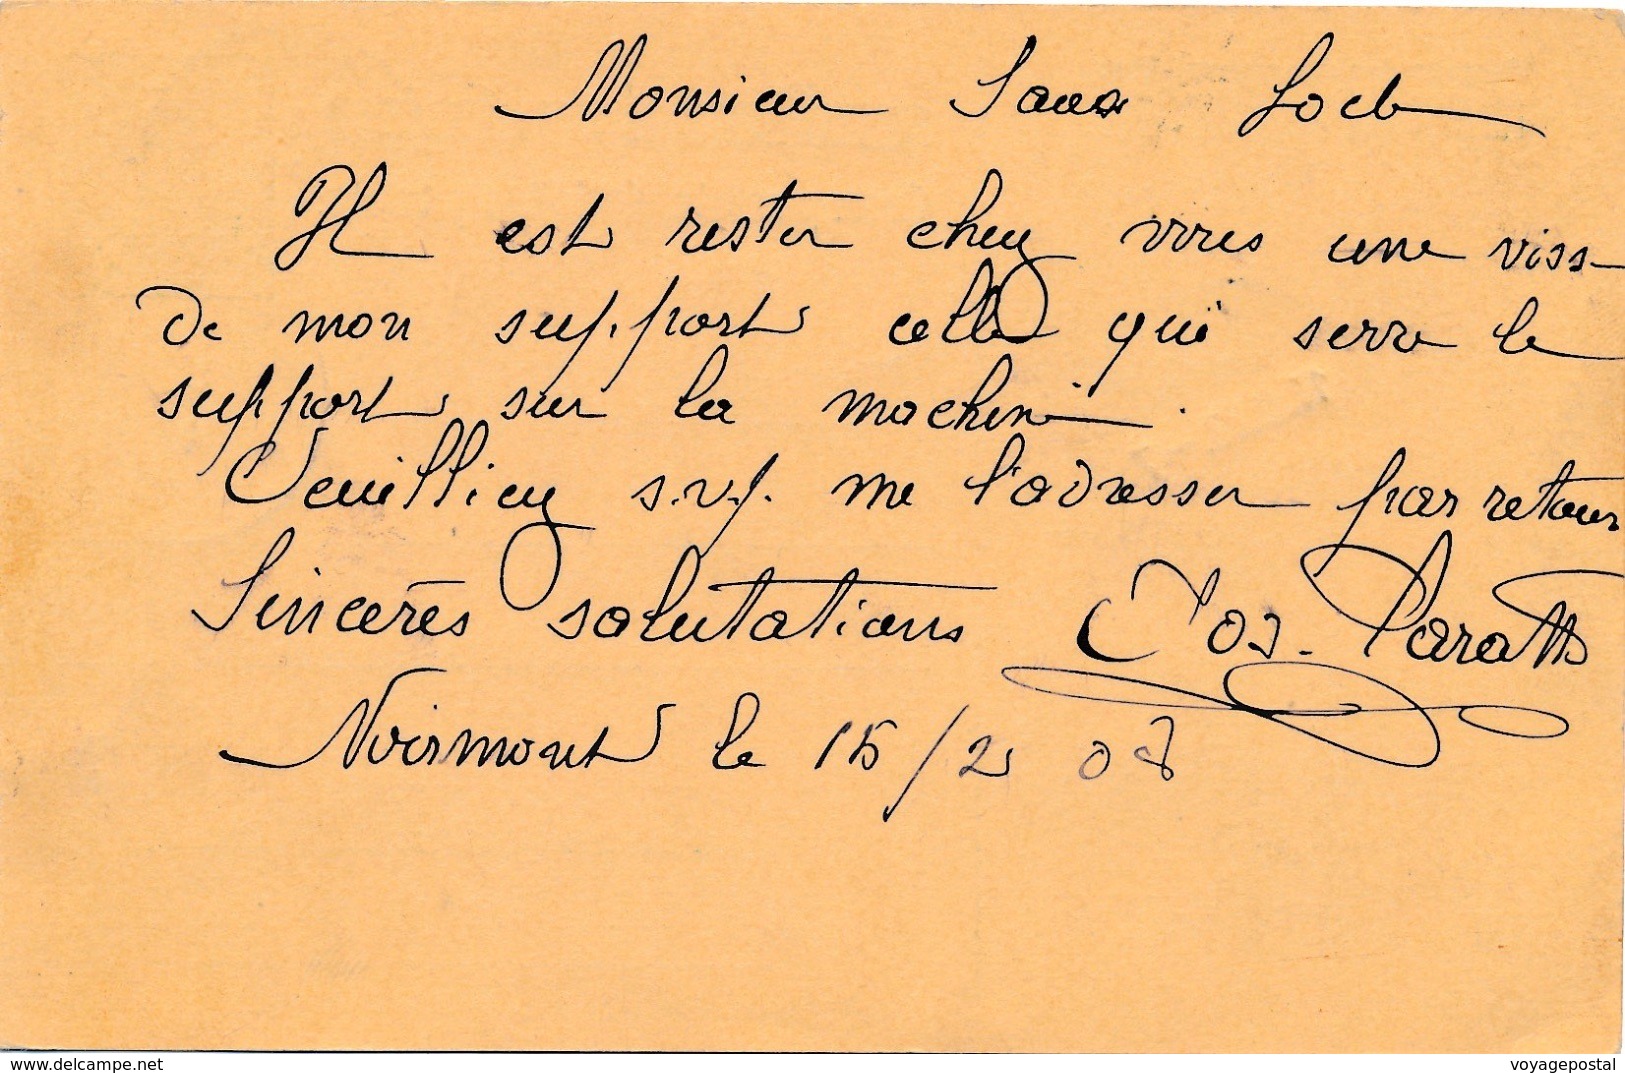 Monsieur Loeb
Il est rester chez vous une viss
de mon support celle qui serre le
support sur la machine.
Veuilliez s.v.p. me l'adresser par retour
Sincères salutations Jos. Paratte
Noirmont le 15/2 08
www.delcampe.net
voyagepostal